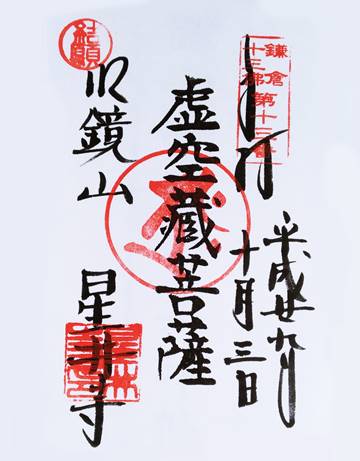 奉拝
鎌倉
十三佛
第十三番
平成廿九年
十月三日
虚空蔵菩薩
明鏡山
星井寺